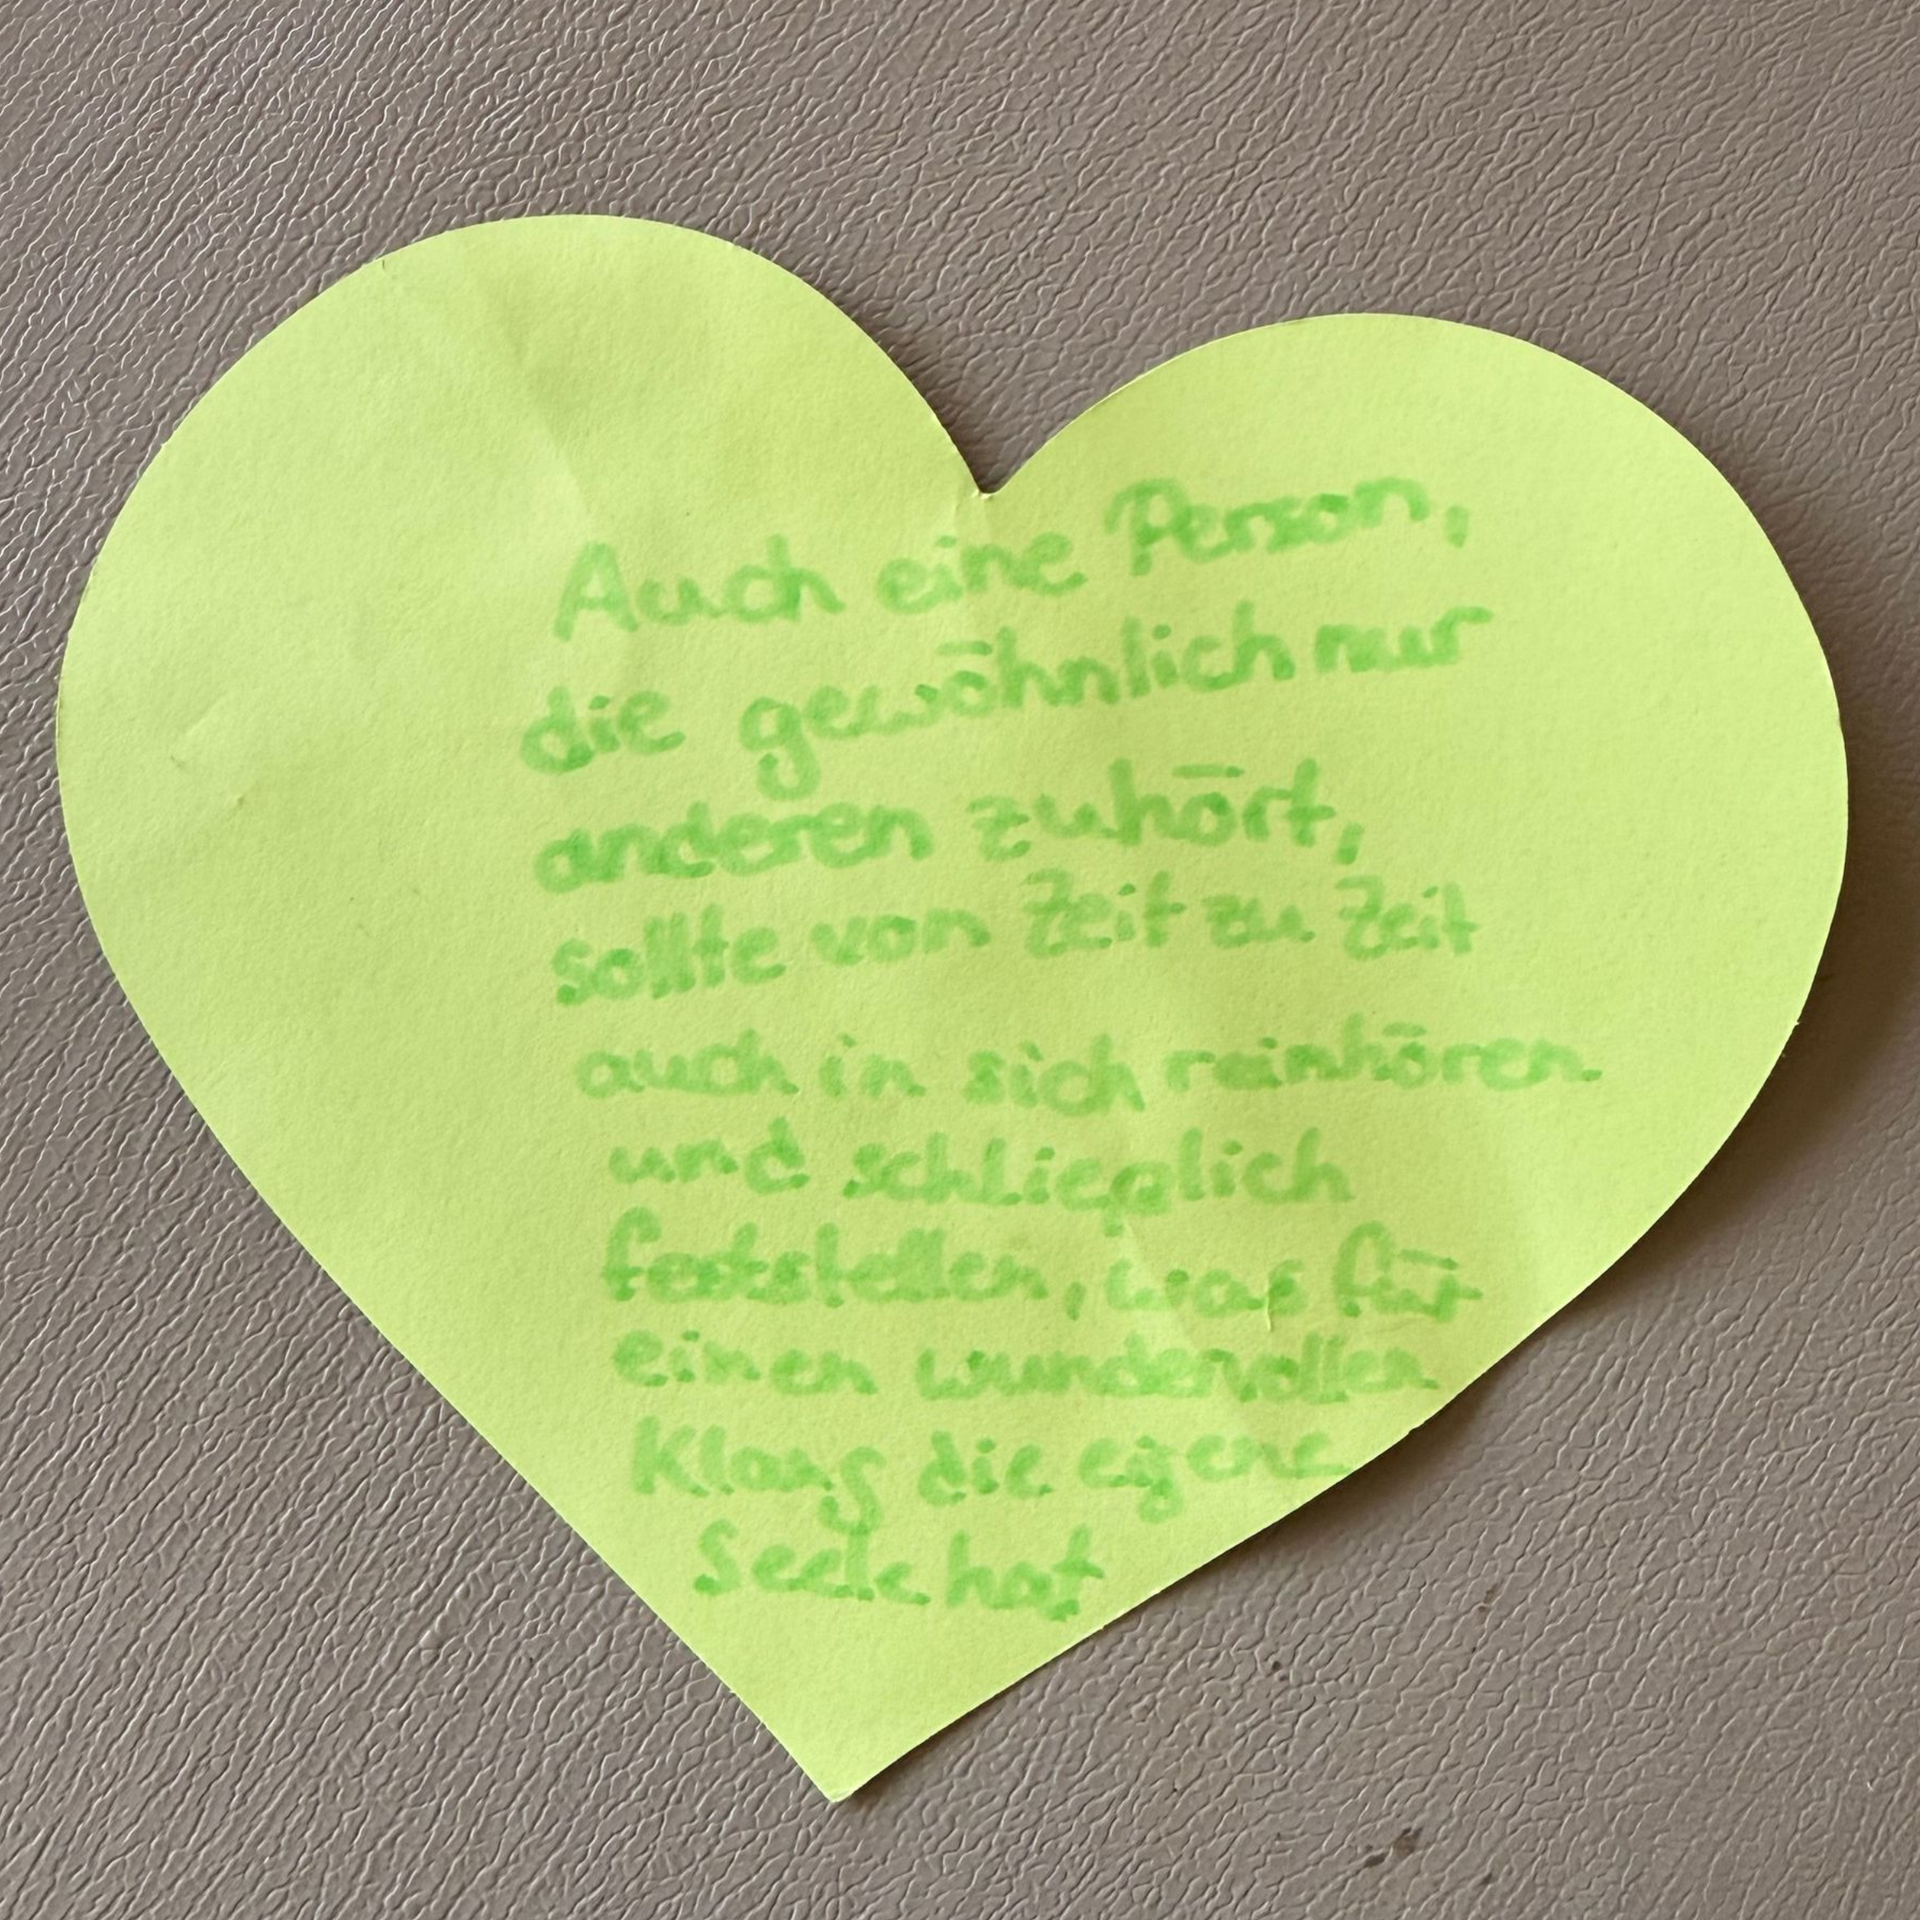 Auch eine Person,
die gewöhnlich nur
anderen zuhört,
sollte von Zeit zu Zeit
auch in sich reinhören
und schließlich
feststellen, was für
einen wundervollen
Klang die eigene
Seele hat